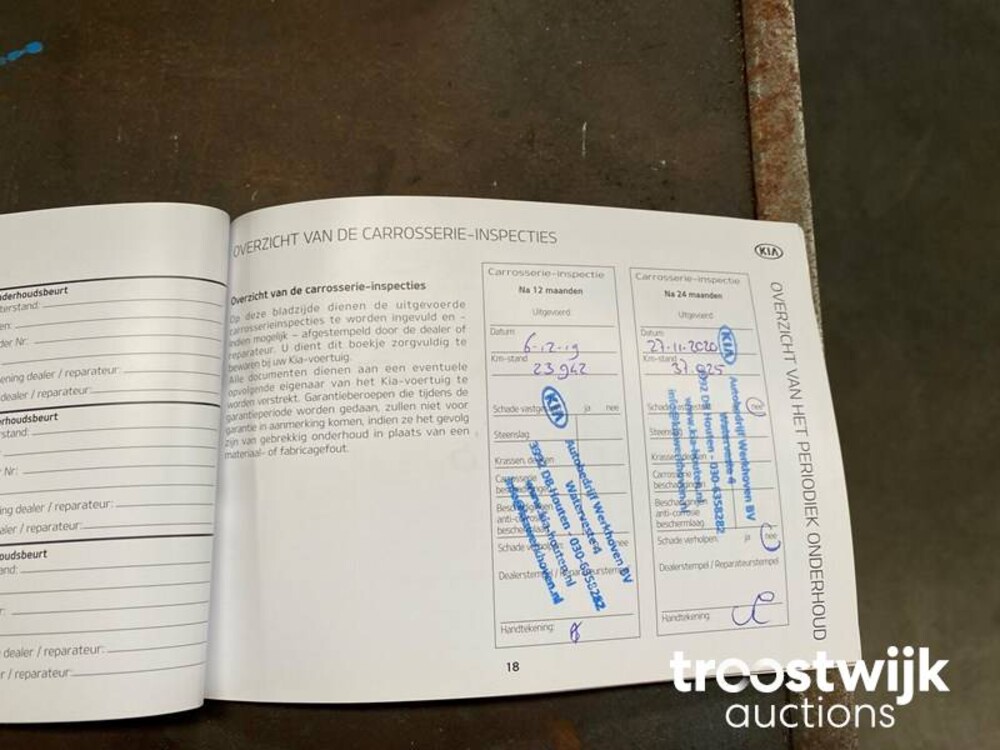 nderhoudsbeurt
terstand:
en:
der Nr.:
ening dealer / reparateur:
dealer / reparateur:
rhoudsbeurt
stand:
Nr:
ing dealer / reparateur:
aler / reparateur:
oudsbeurt
and:
r:
dealer / reparateur:
r / reparateur:
OVERZICHT VAN DE CARROSSERIE-INSPECTIES
Overzicht van de carrosserie-inspecties
Op deze bladzijde dienen de uitgevoerde
carrosserieinspecties te worden ingevuld en -
indien mogelijk - afgestempeld door de dealer of
reparateur. U dient dit boekje zorgvuldig te
bewaren bij uw Kia-voertuig.
Alle documenten dienen aan een eventuele
opvolgende eigenaar van het Kia-voertuig te
worden verstrekt. Garantieberoepen die tijdens de
garantieperiode worden gedaan, zullen niet voor
garantie in aanmerking komen, indien ze het gevolg
zijn van gebrekkig onderhoud in plaats van een
materiaal- of fabricagefout.
Carrosserie-inspectie
Na 12 maanden
Uitgevoerd
Datum
6-12-19
Km-stand
23942
Schade vastge ja nee
Steenslag
Krassen, deuken
Carrosserie
Schade verholpen nee
Dealerstempel / Reparateurstempel
Handtekening:
KIA
Autobedrijf Werkhoven BV
Waterveste 4
3992 DB Houten - 030-6358282
www.kia-houten.nl
Carrosserie-inspectie
Na 24 maanden
Uitgevoerd
Datum
27-11-2020
Km-stand
37.925
Schade vastgesteld nee
Steenslag
Krassen, deuken
Carrosserie
beschadigingen
Beschadigingen
anti-corrosie
beschermlaag
Schade verholpen: ja nee
Dealerstempel / Reparateurstempel
Handtekening:
KIA
Autobedrijf Werkhoven BV
Waterveste 4
3992 DB Houten - 030-6358282
www.kia-houten.nl
info@kiawerkhoven.nl
KIA
OVERZICHT VAN HET PERIODIEK ONDERHOUD
18
troostwijk
auctions